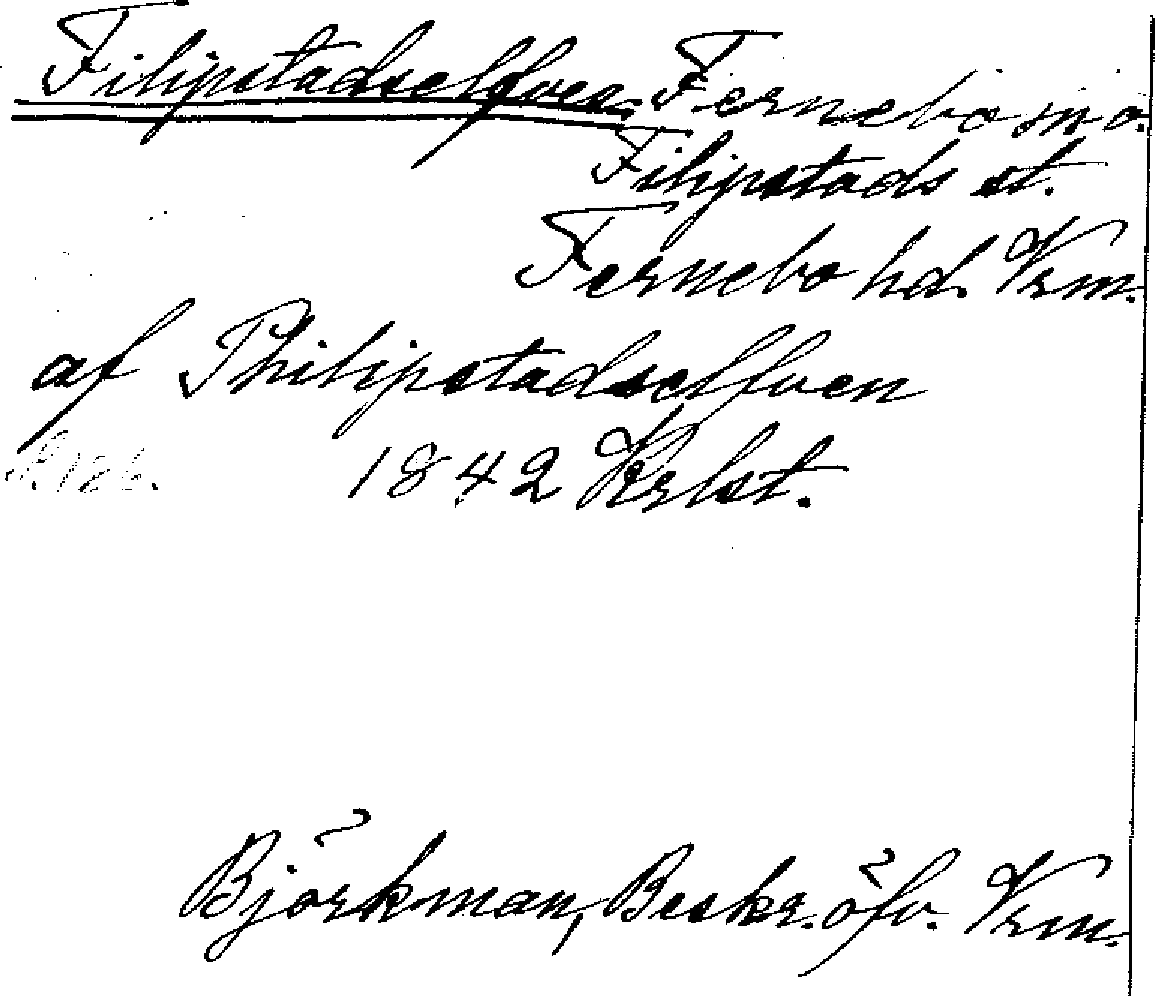 Filipstadselfven. Fernebo sn o.
Filipstads st.
Fernebo hd. Vrm.
af Philipstadselfven
S. 126. 1842 Krlst.
Björkman, Beskr. öfv. Vrm.